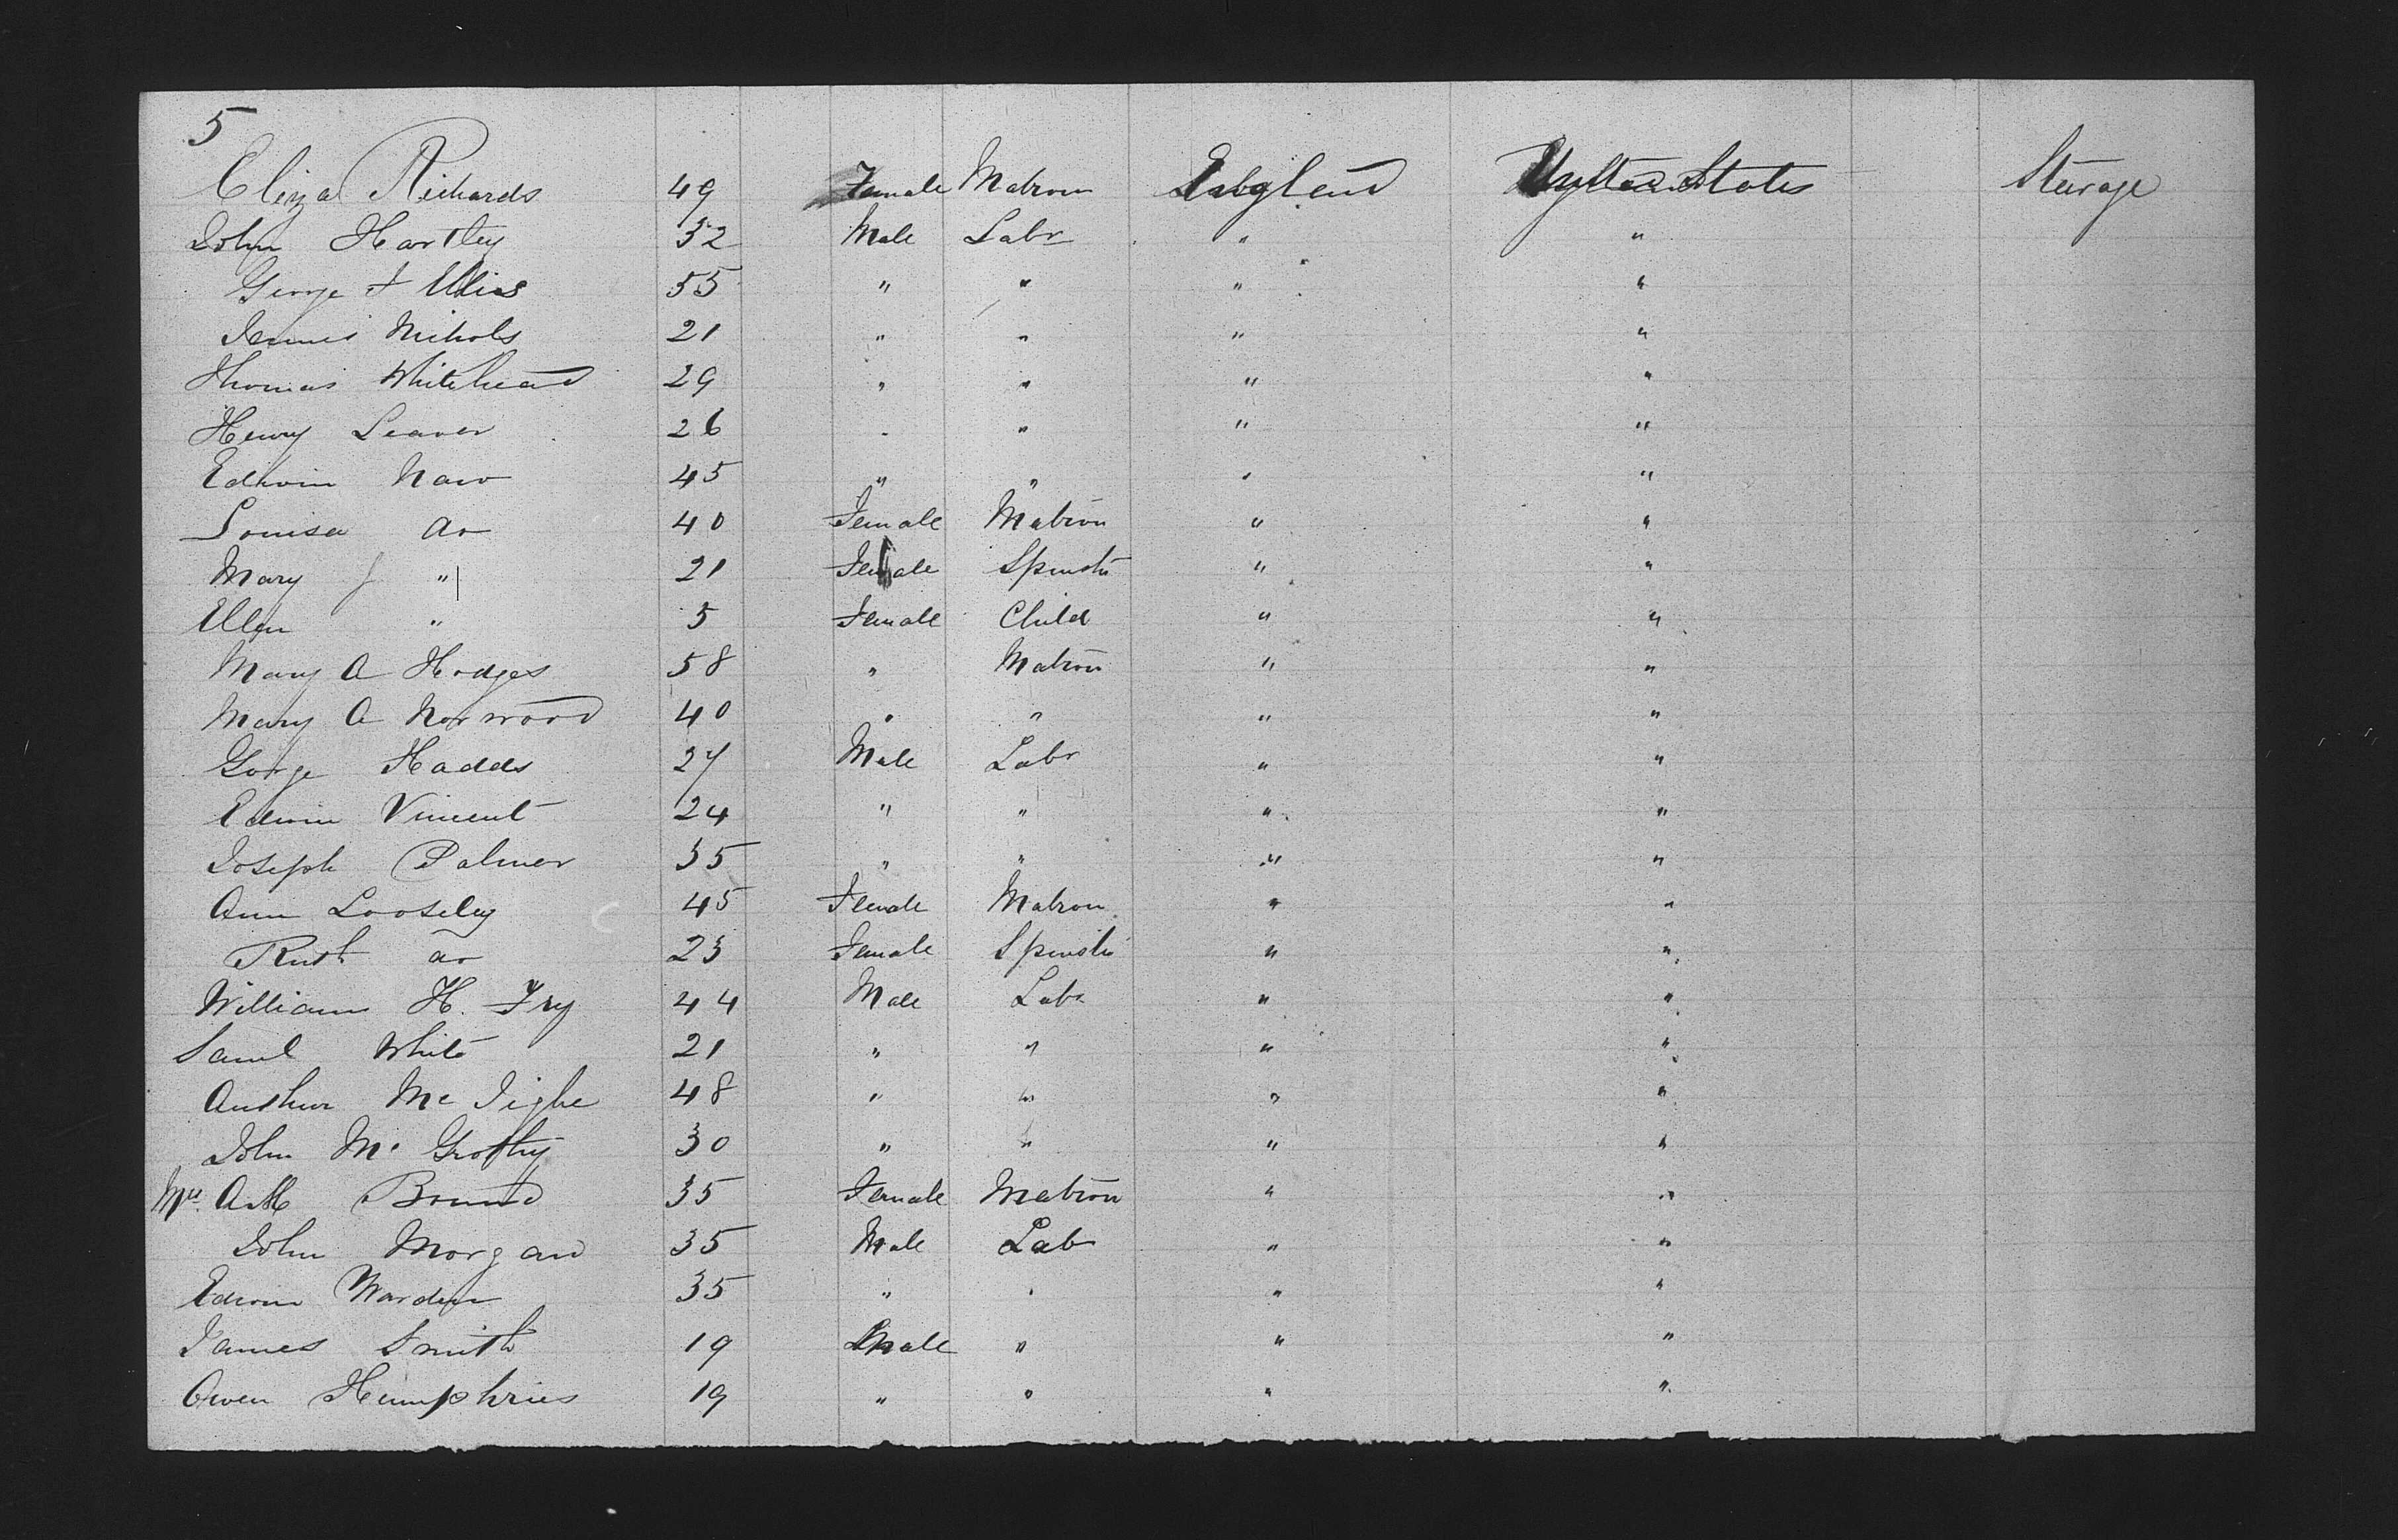 5
Eliza Richards 49 Female Matron England United States Steerage
John Hartley 32 Male Labr " "
George Ellis 55 " " " "
Nichols 21 " " " "
Thomas Whitehead 29 " " " "
Henry Leaver 26 " " " "
Edwin Naw 45 " " " "
Louisa do 40 Female Matron " "
Mary J " 21 Female Spinstr " "
Ellen " 5 Female Child " "
Mary A Hodges 58 " Matron " "
Mary A Norwood 40 " " " "
Gorge Hadds 27 Male Labr " "
Edwin Vincent 24 " " " "
Joseph Palmer 35 " " " "
Ann Loosely 45 Female Matron " "
Ruth do 23 Female Spinstr " "
William H. Fry 44 Male Labr " "
Saml White 21 " " " "
Arthur Mc Tighe 48 " " " "
John Mc 30 " " " "
Mrs. 35 Female Matron " "
John Morgan 35 Male Lab " "
Edwin Warden 35 " " " "
James Smith 19 Male " " "
Owen Humphries 19 " " " "